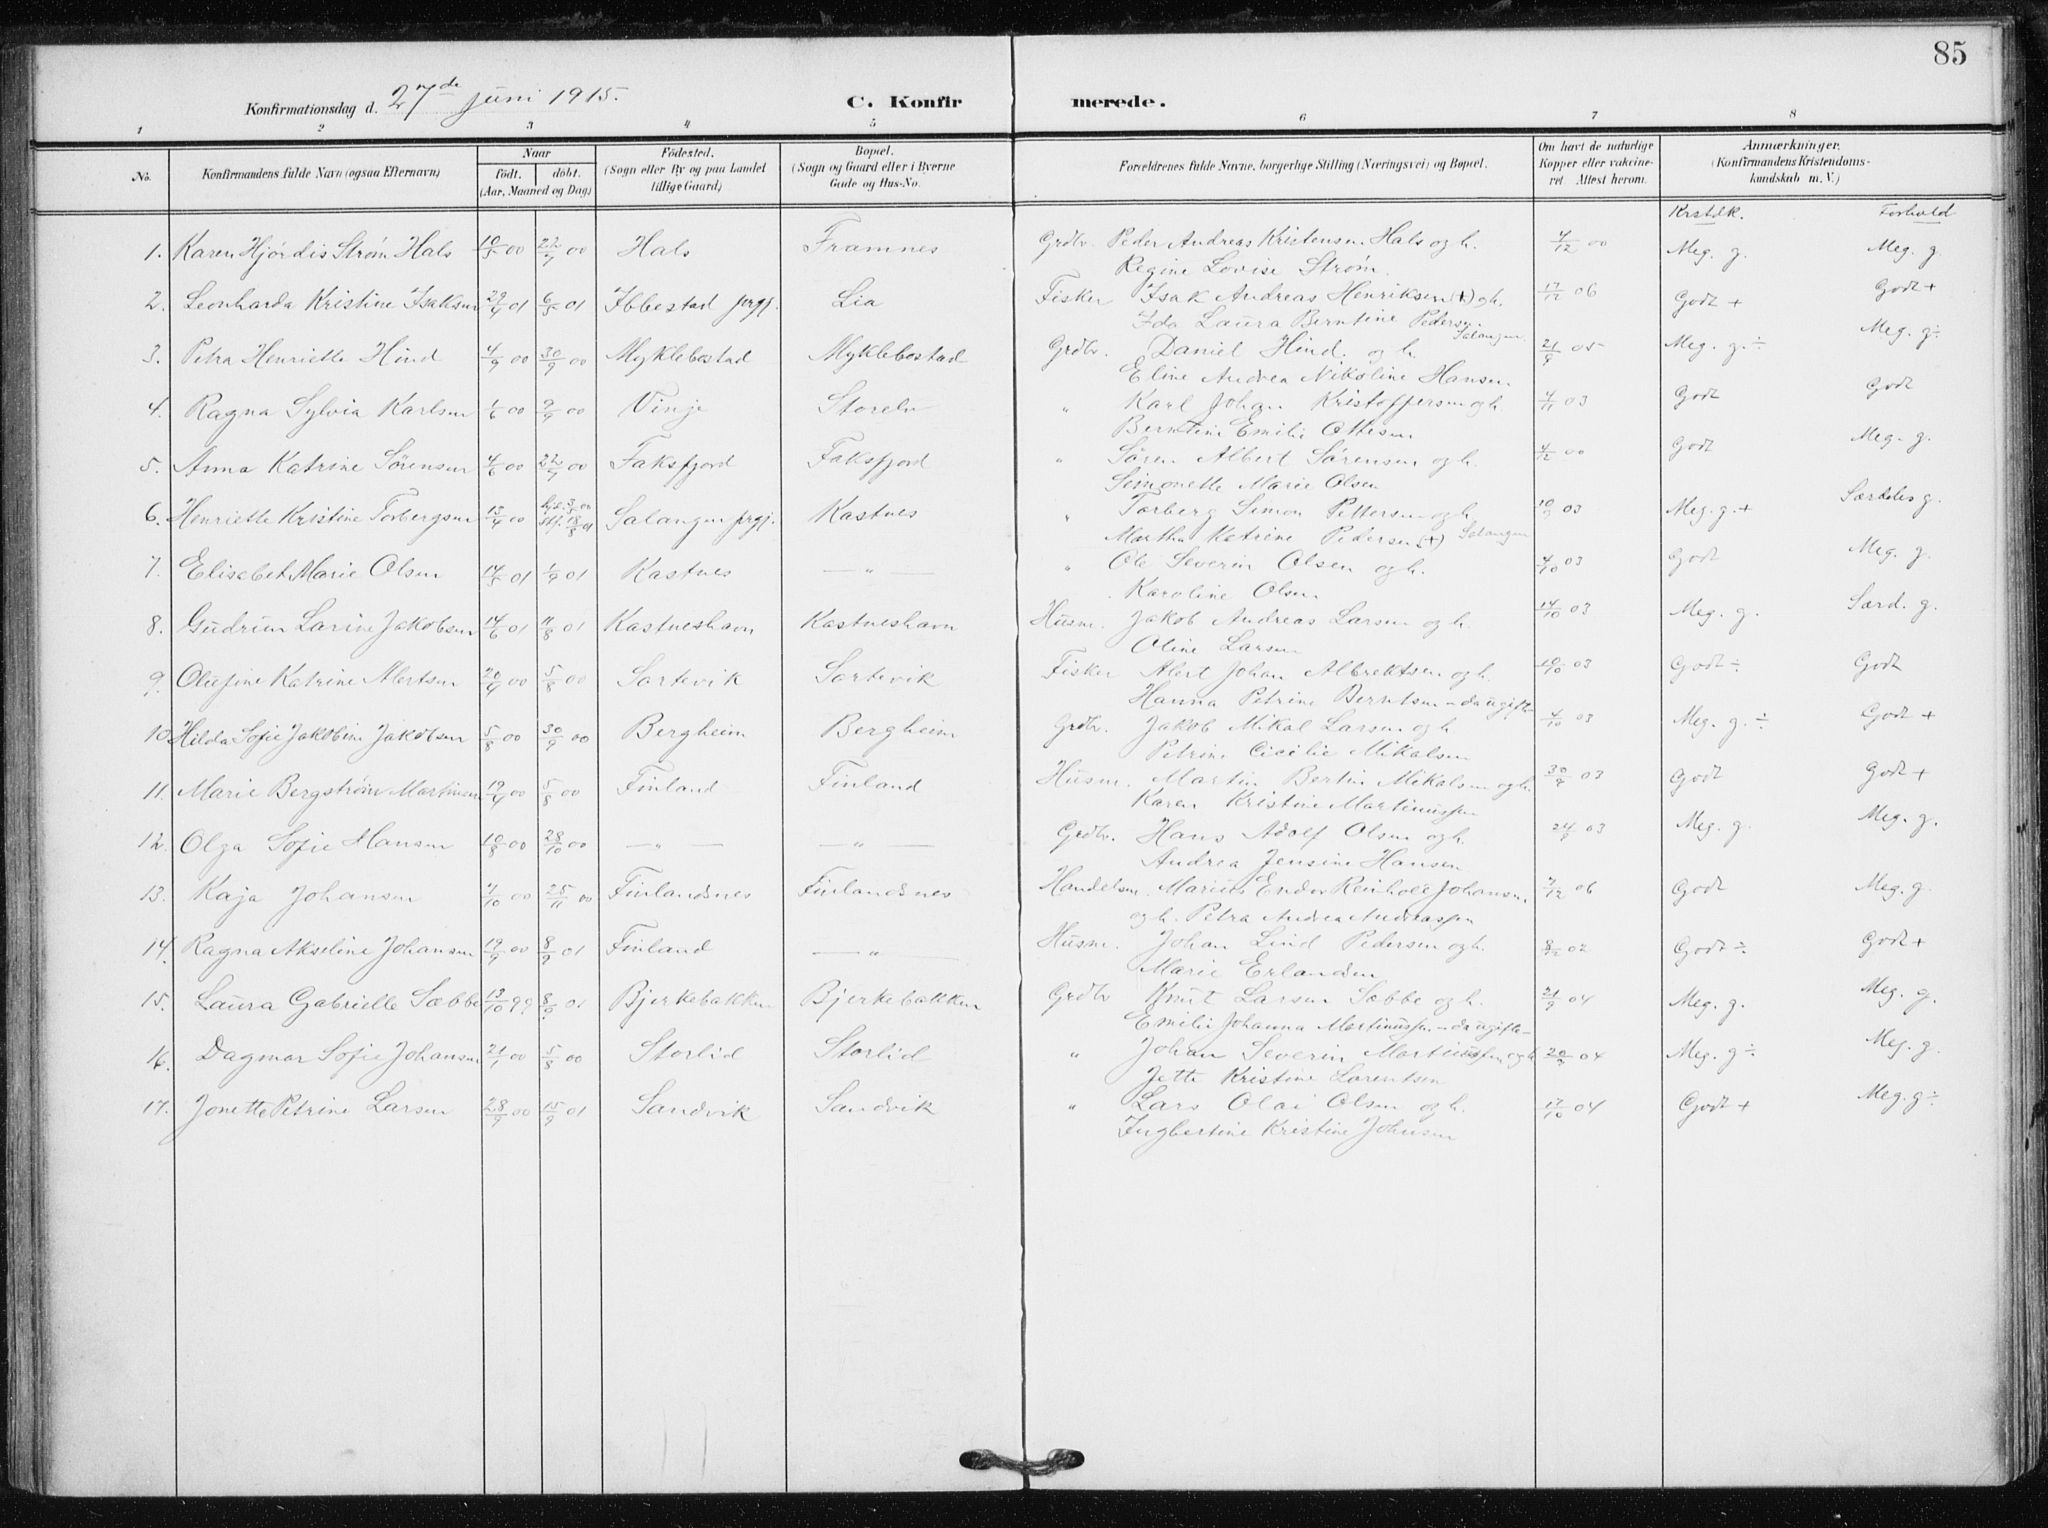 85
Konfirmationsdag d. 27de Juni 1915.
C. Konfirmerede.
1 2 3 4 5 6 7 8
No. Konfirmandens fulde Navn (ogsaa Efternavn) Naar født. døbt. (Aar, Maaned og Dag) Fødested. (Sogn eller By og paa Landet tillige Gaard) Bopæl. (Sogn og Gaard eller i Byerne Gade og Hus-No. Forældrenes fulde Navne, borgerlige Stilling (Næringsvei) og Bopæl. Om havt de naturlige Kopper eller vakcineret. Attest herom. Anmærkninger. (Konfirmandens Kristendomskundskab m. V.)
Krstdk. Forhold
1. Karen Hjørdis Strøm Hals 10/5 00 22/7 00 Hals Framnes Grdbr. Peder Andreas Kristensen Hals og h. 4/12 00 Meg. g. Meg. g.
Regine Lovise Strøm.
2. Leonharda Kristine Isaksen 29/4 01 6/5 01 Ibbestad prgj. Lia Fisker Isak Andreas Henriksen (+) og h. 17/12 06 Godt + Godt +
Ida Laura Berntine Pedersen. Salangen
3. Petra Henriette Hind 4/9 00 30/9 00 Myklebostad Myklebostad Grdbr. Daniel Hind. og h. 21/9 05 Meg. g. ÷ Meg. g ÷
Eline Andrea Nikoline Hansen
4. Ragna Sylvia Karlsen 1/6 00 9/9 00 Vinje Storelv " Karl Johan Kristoffersen og h. 4/11 03 Godt Godt
Berntine Emilie Ottesen
5. Anna Katrine Sørensen 4/6 00 22/7 00 Faksfjord Faksfjord " Søren Albert Sørensen og h. 4/12 00 Godt Meg. g.
Simonette Marie Olsen
6. Henriette Kristine Torbergsen 13/4 00 18/8 01 Salangen prgj. Kastnes " Torberg Simon Pettersen og h. 03 Meg. g. + Særdeles g.
Martha Katrine Pedersen (+) Salangen
7. Elisabet Marie Olsen 01 1/9 01 Kastnes — " — " Ole Severin Olsen og h. 4/10 03 Godt Meg. g.
Karoline Olsen
8. Gudrun Larine Jakobsen 14/6 01 11/8 01 Kastneshavn Kastneshavn Husm. Jakob Andreas Larsen og h. 14/10 03 Meg. g. Særd. g.
Oline Larsen
9. Olufine Katrine Alertsen 20/4 00 5/8 00 Sørtevik Sørtevik Fisker Alert Johan Albrektsen og h. 03 Godt ÷ Godt
Hanna Petrine Berntsen – da ugifte –
10. Hilda Sofie Jakobine Jakobsen 5/8 00 30/9 00 Bergheim Bergheim Grdbr. Jakob Mikal Larsen og h 4/10 03 Meg. g. ÷ Godt +
Petrine Cicilie Mikalsen
11. Marie Bergstrøm Martinsen 00 5/8 00 Finland Finland Husm. Martin Bertin Mikalsen og h. 30/9 03 Godt Godt +
Karen Kristine Martinussen
12. Olga Sofie Hansen 10/8 00 28/10 00 — " — — " — Grdbr. Hans Adolf Olsen og h. 24/9 03 Meg. g. Meg. g.
Andrea Jensine Hansen
13. Kaja Johansen 7/10 00 25/11 00 Finlandsnes Finlandsnes Handelsm. Marius Endor Reinholt Johansen 7/12 06 Godt Meg. g.
og h. Petra Andrea Andreassen
14. Ragna Akseline Johansen 19/9 00 8/9 01 Finland — " — Husm. Johan Lind Pedersen og h. 8/12 02 Godt ÷ Godt +
Marie Erlandsen
15. Laura Gabrielle Sæbbe 13/10 99 8/9 01 Bjerkebakken Bjerkebakken Grdbr Knut Larsen Sæbbe og h. 21/9 04 Meg. g. Meg. g.
Emilie Johanna Martinussen – da ugifte –
16. Dagmar Sofie Johansen 21/1 00 5/8 00 Storlid Storlid " Johan Severin Martinussen og h 20/9 04 Meg. g ÷ Meg. g.
Jette Kristine Lorentsen
17. Jonette Petrine Larsen 28/9 00 15/9 01 Sandvik Sandvik " Lars Olai Olsen og h. 17/10 04 Godt + Meg. g ÷
Ingbertine Kristine Johnsen